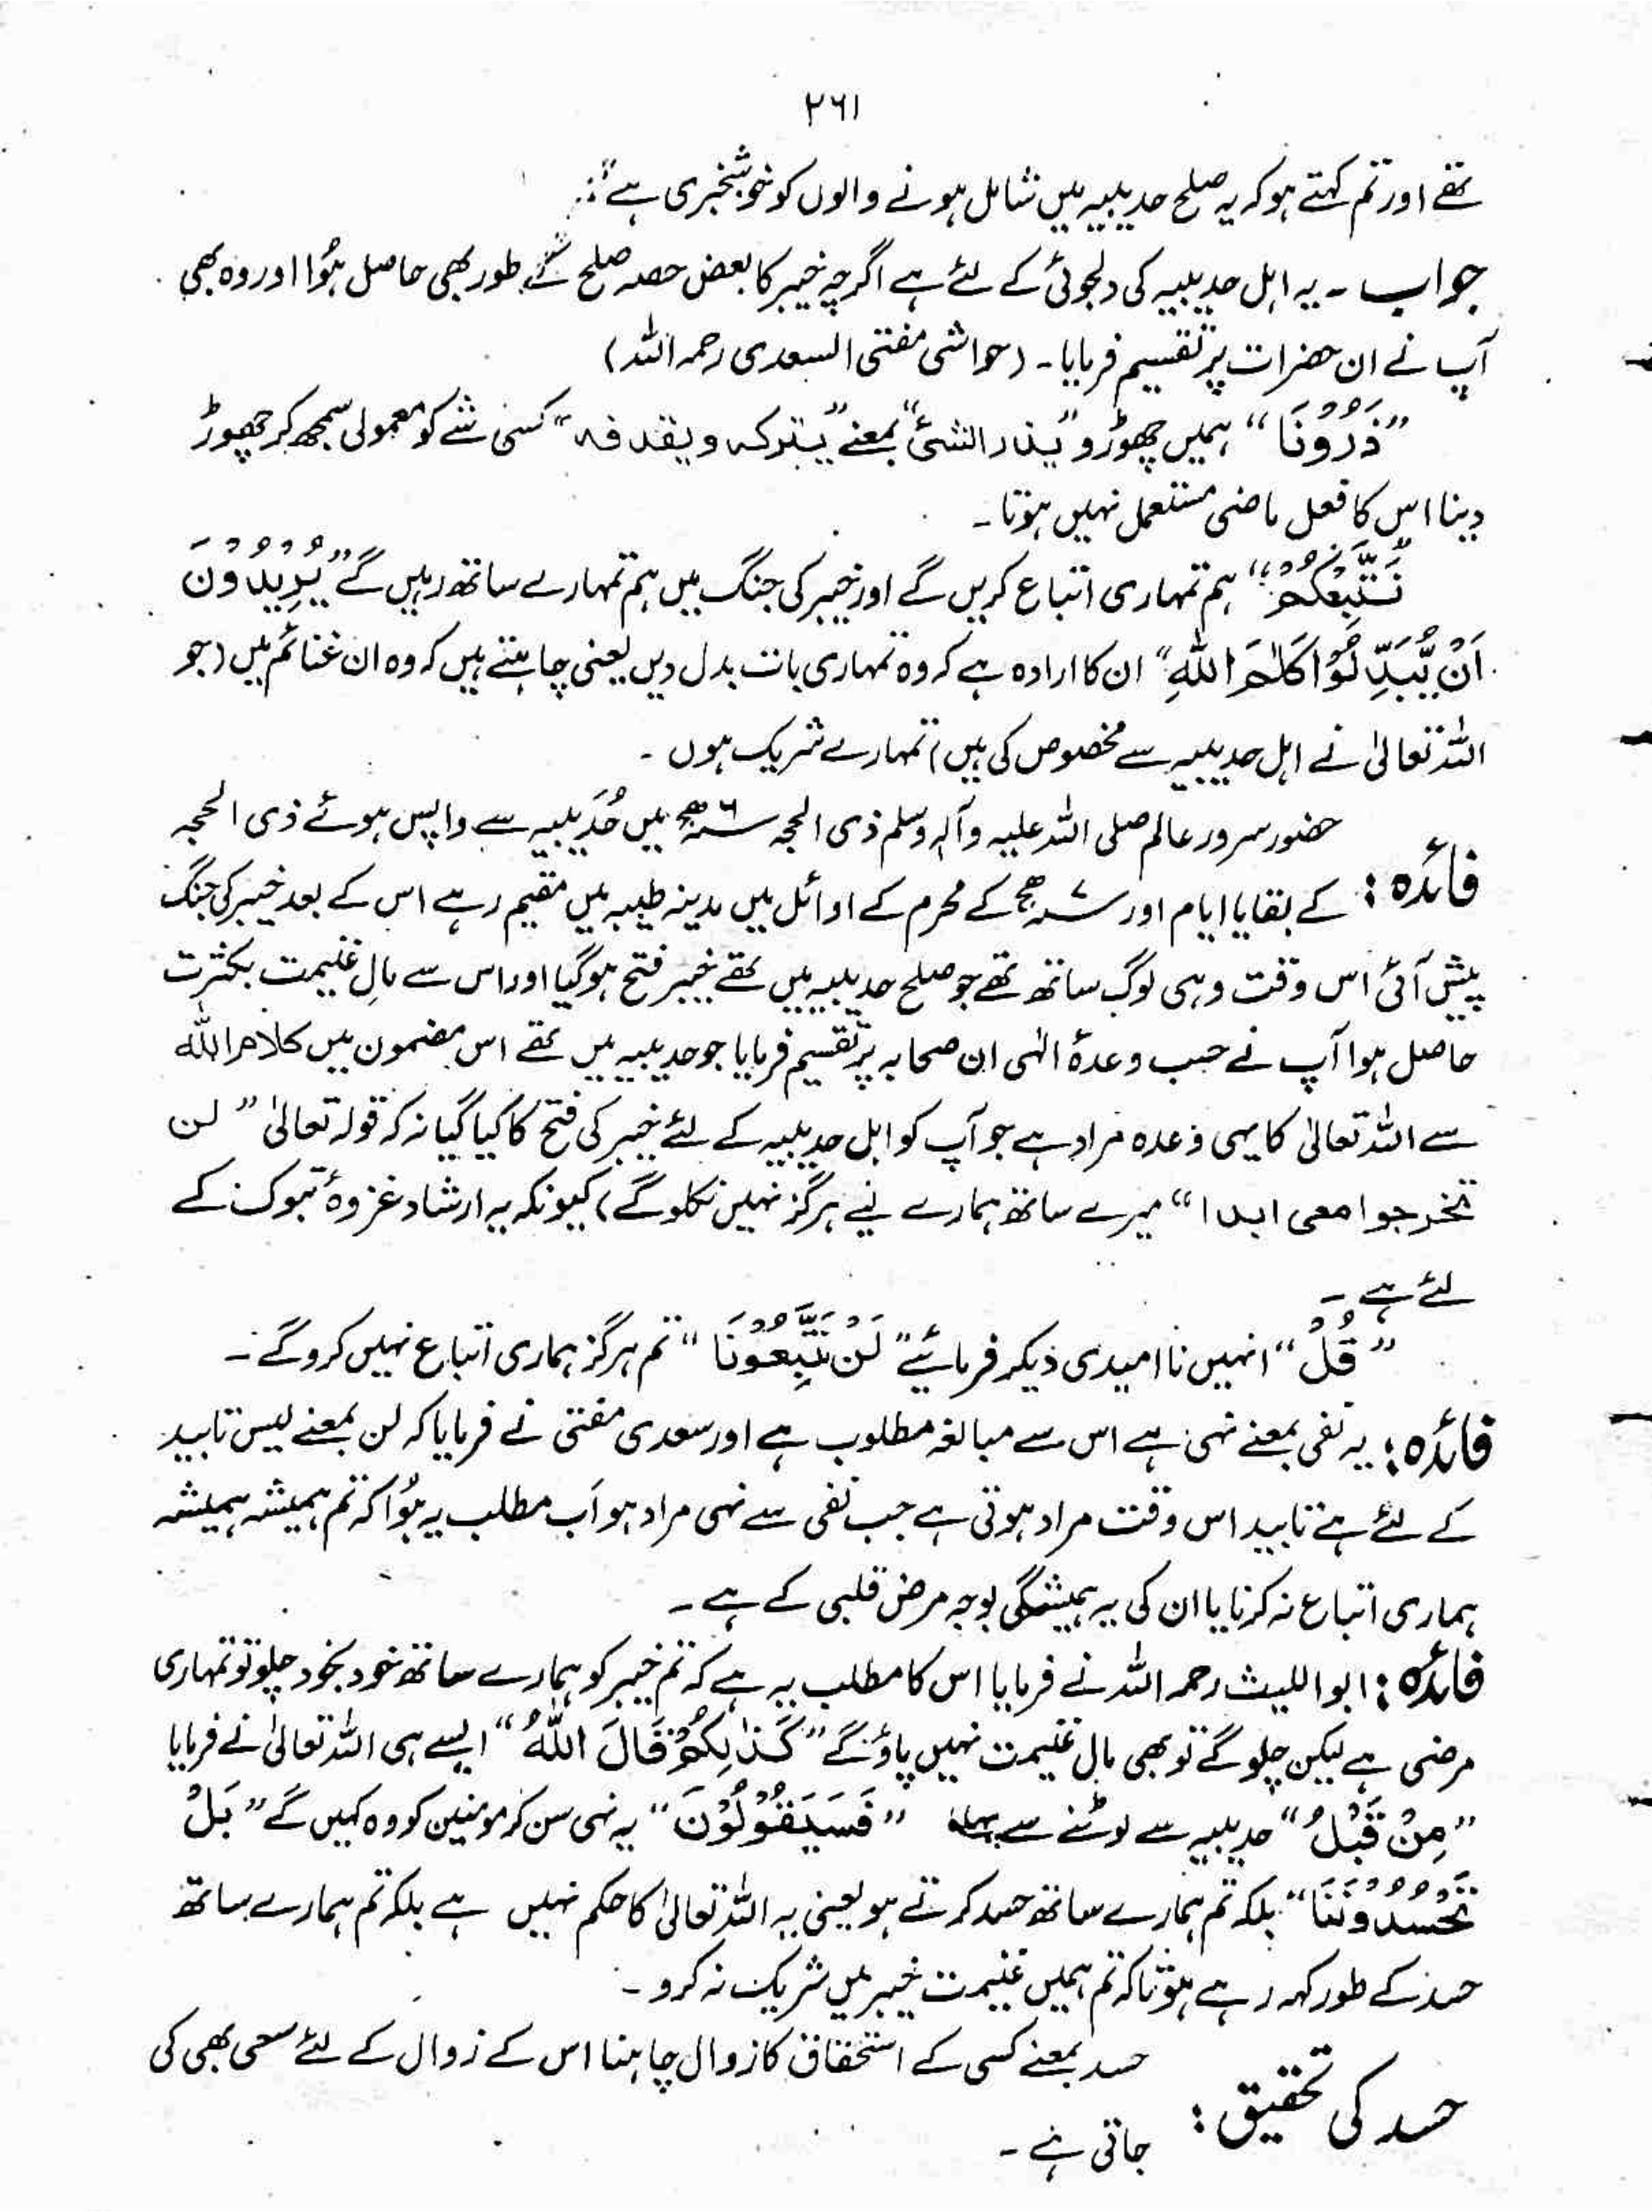 ۲۶۱
تھے اور تم کہتے ہو کہ یہ صلح حدیبیہ میں شامل ہونے والوں کو خوشخبری ہے"۔
جواب ۔ یہ اہل حدیبیہ کی دلجوئی کے لئے ہے اگرچہ خیبر کا بعض حصہ صلح کے طور بھی حاصل ہؤا اور وہ بھی
آپ نے ان حضرات پر تقسیم فرمایا ۔ (حواشی مفتی السعدی رحمہ اللہ)
"ذَرُوْنَا" ہمیں چھوڑو "یذر الشئ" بمعنے "یترکہ ویقذفہ" کسی شے کو معمولی سمجھ کر چھوڑ
دینا اس کا فعل ماضی مستعمل نہیں ہوتا ۔
نَتَّبِعْكُمْ" ہم تمہاری اتباع کریں گے اور خیبر کی جنگ میں ہم تمہارے ساتھ رہیں گے "يُرِيْدُوْنَ
اَنْ يُّبَدِّلُوْا كَلٰمَ اللّٰهِ" ان کا ارادہ ہے کہ وہ تمہاری بات بدل دیں یعنی چاہتے ہیں کہ وہ ان غنائم میں (جو
اللہ تعالیٰ نے اہل حدیبیہ سے مخصوص کی ہیں) تمہارے شریک ہوں ۔
حضور سرور عالم صلی اللہ علیہ وآلہٖ وسلم ذی الحجہ ۶ سنہ ھ میں حُدَیبیہ سے واپس ہوئے ذی الحجہ
فائدہ : کے بقایا ایام اور ۷ سنہ ھ کے محرم کے اوائل میں مدینہ طیبہ میں مقیم رہے اس کے بعد خیبر کی جنگ
پیش آئی اس وقت وہی لوگ ساتھ تھے جو صلح حدیبیہ میں تھے خیبر فتح ہوگیا اور اس سے مالِ غنیمت بکثرت
حاصل ہوا آپ نے حسب وعدۂ الٰہی ان صحابہ پر تقسیم فرمایا جو حدیبیہ میں تھے اس مضمون میں کلام اللہ
سے اللہ تعالیٰ کا یہی وعدہ مراد ہے جو آپ کو اہل حدیبیہ کے لئے خیبر کی فتح کا کیا گیا نہ کہ قولہ تعالیٰ " لن
تخرجوا معی ابدا " میرے ساتھ ہمارے نبی ہرگز نہیں نکلو گے) کیونکہ یہ ارشاد غزوۂ تبوک کے
لئے ہے ۔
"قُلْ" انہیں نا امیدی دیکر فرمائیے "لَنْ تَتَّبِعُوْنَا" تم ہرگز ہماری اتباع نہیں کروگے ۔
فائدہ : یہ نفی بمعنے نہی ہے اس سے مبالغہ مطلوب ہے اور سعدی مفتی نے فرمایا کہ لن بمعنے لیس تابید
کے لئے ہے تابید اس وقت مراد ہوتی ہے جب نفی سے نہی مراد ہو اَب مطلب یہ ہؤا کہ تم ہمیشہ ہمیشہ
ہماری اتباع نہ کرنا یا ان کی یہ ہمیشگی بوجہ مرض قلبی کے ہے ۔
فائدہ : ابو اللیث رحمہ اللہ نے فرمایا اس کا مطلب یہ ہے کہ تم خیبر کو ہمارے ساتھ خود بخود چلو تو تمہاری
مرضی ہے لیکن چلو گے تو بھی مال غنیمت نہیں پاؤگے "كَذٰلِكُمْ قَالَ اللّٰهُ" ایسے ہی اللہ تعالیٰ نے فرمایا
"مِنْ قَبْلُ" حدیبیہ سے لوٹنے سے پہلے "فَسَيَقُوْلُوْنَ" یہ نہی سن کر مومنین کو وہ کہیں گے "بَلْ
تَحْسُدُوْنَنَا" بلکہ تم ہمارے ساتھ حسد کرتے ہو یعنی یہ اللہ تعالیٰ کا حکم نہیں ہے بلکہ تم ہمارے ساتھ
حسد کے طور کہہ رہے ہو تاکہ تم ہمیں غنیمت خیبر میں شریک نہ کرو ۔
حسد بمعنے کسی کے استحقاق کا زوال چاہنا اس کے زوال کے لئے سعی بھی کی
حسد کی تحقیق : جاتی ہے ۔